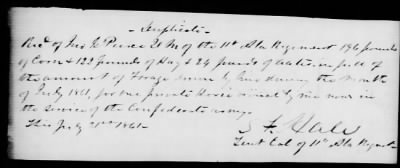 Duplicate
Recd of Jno G Pierce 2t M of the 11th Ala Regiment 196 pounds
of Corn & 122 pounds of Hay & 24 pounds of oats, in full of
the amount of Forage drawn by me during the Month
of July 1861, for one private Horse owned by me now in
the service of the Confederate army.
This July 31st 1861
S. F. Hale
Lieut Col of 11th Ala Regmt